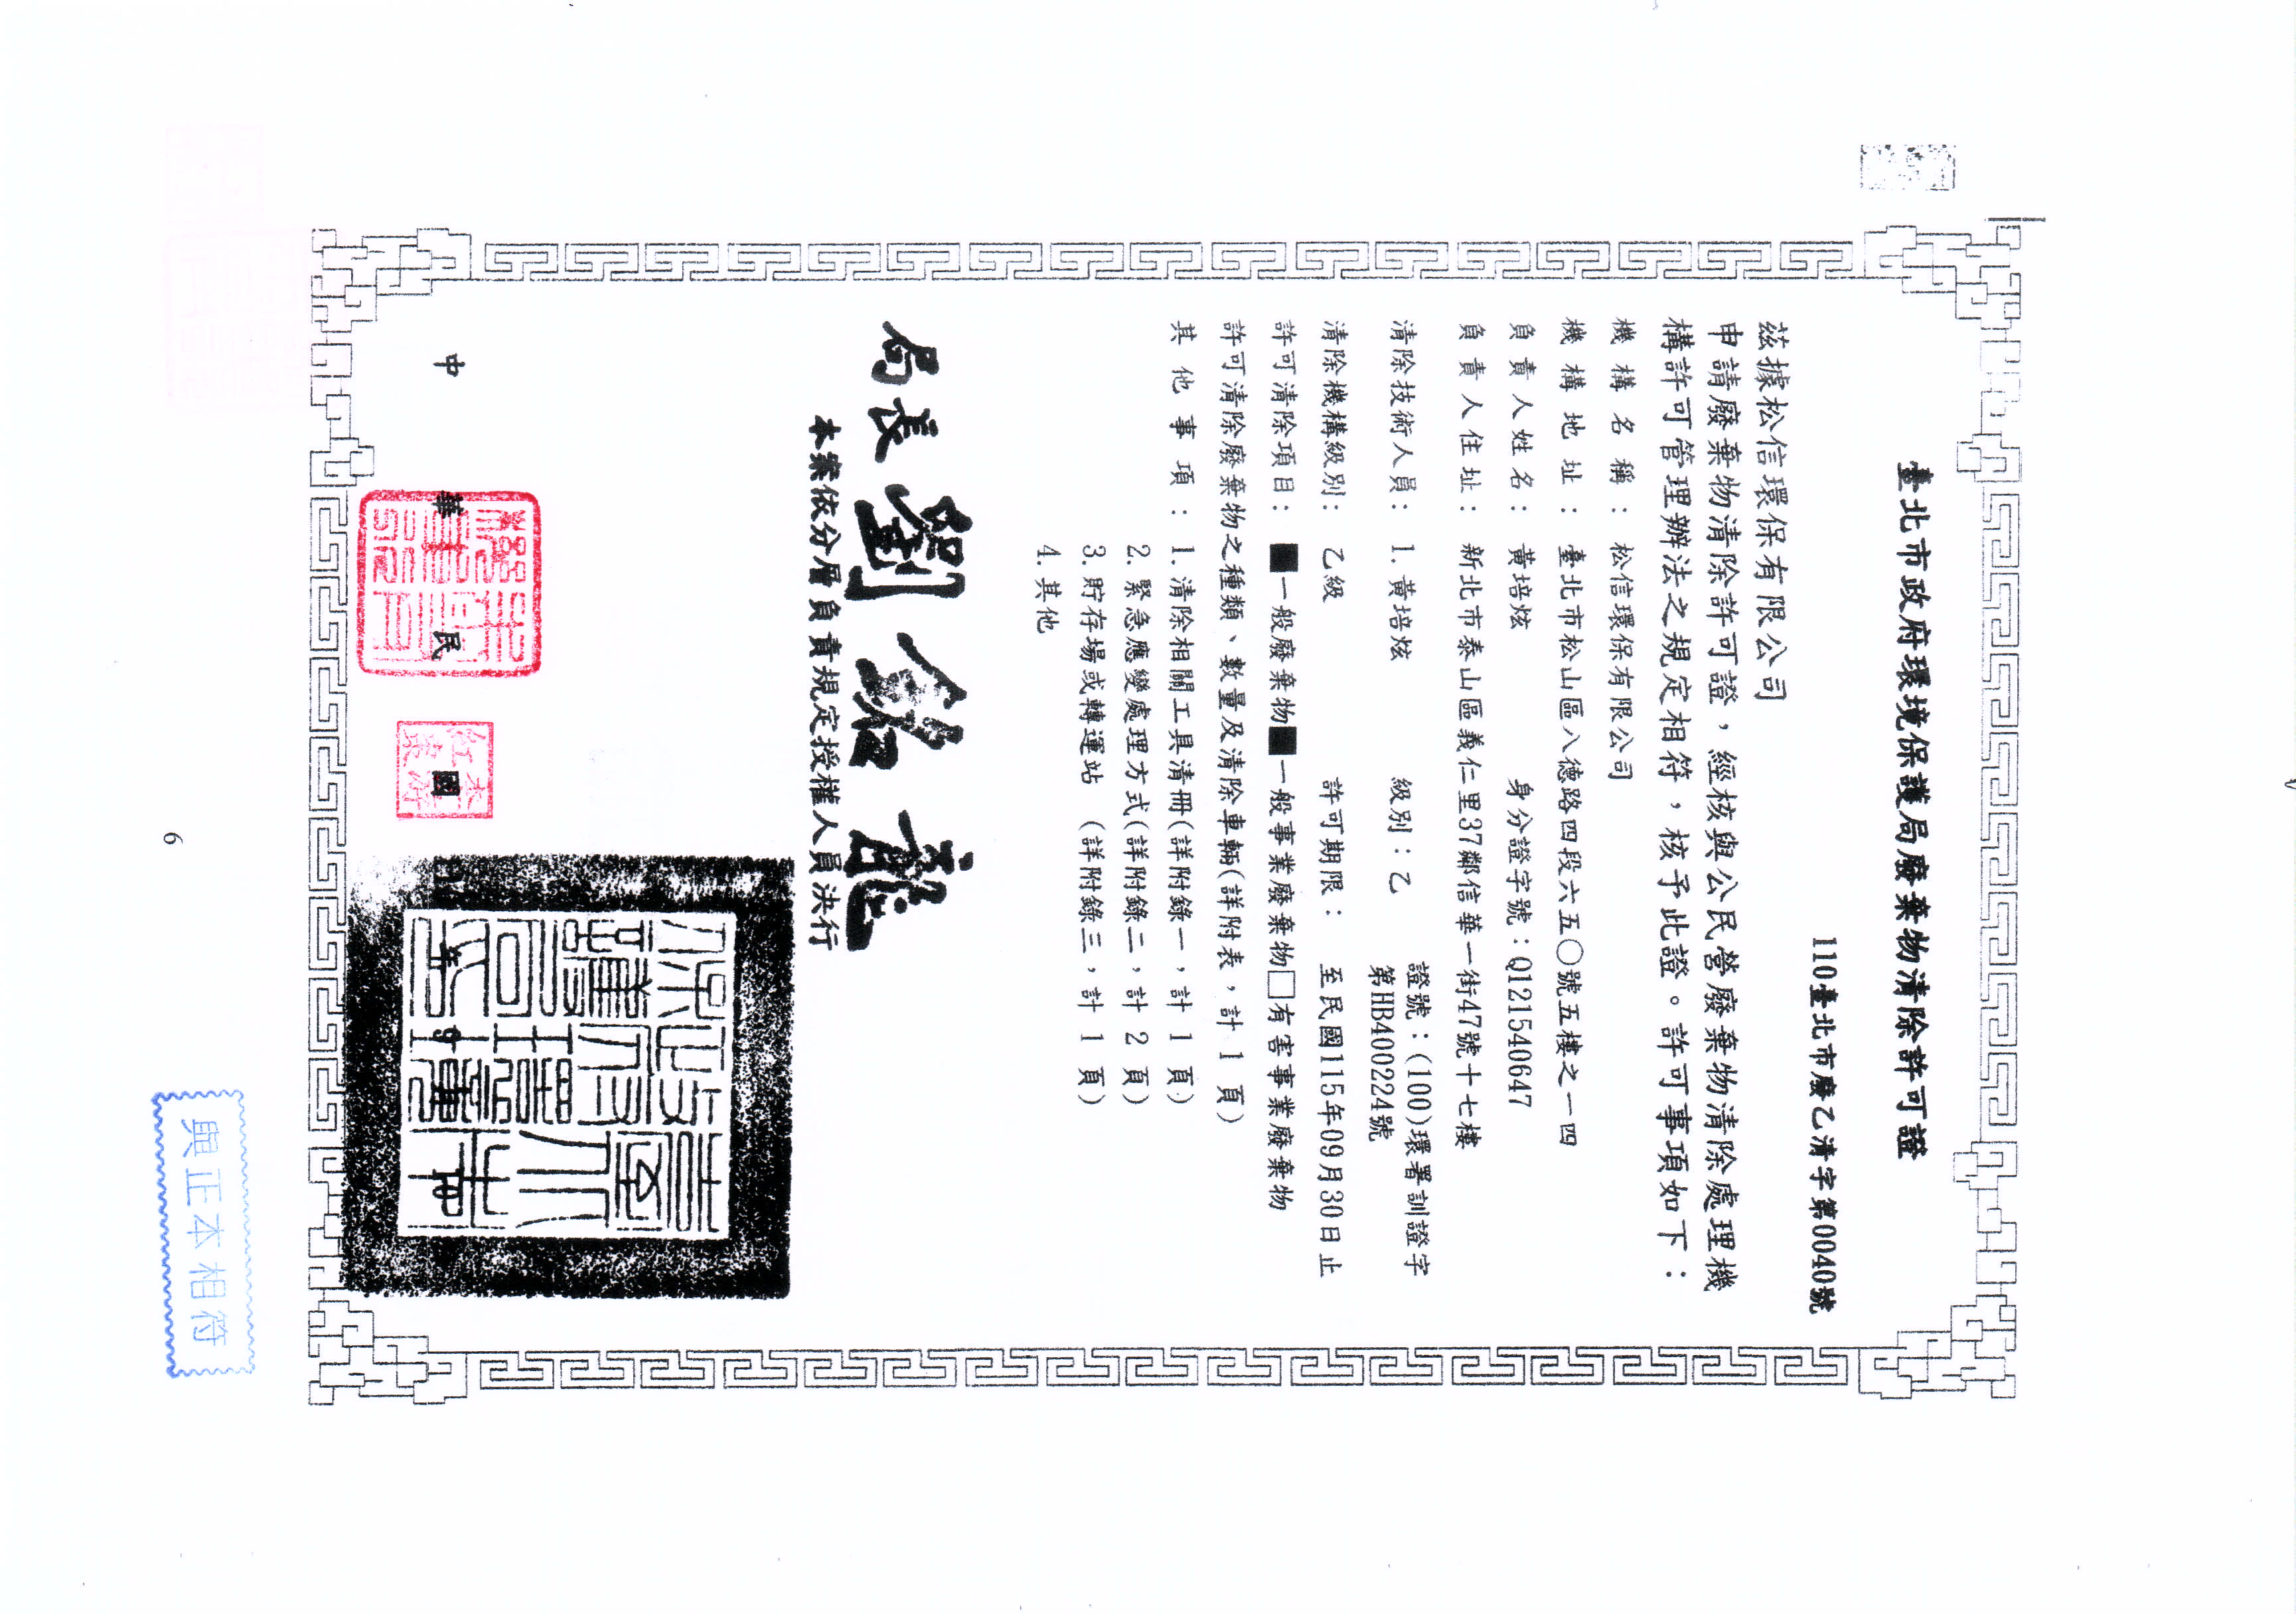 臺北市政府環境保護局廢棄物清除許可證
110臺北市廢乙清字第0040號
茲據松信環保有限公司
申請廢棄物清除許可證，經核與公民營廢棄物清除處理機
構許可管理辦法之規定相符，核予此證。許可事項如下：
機構名稱：松信環保有限公司
機構地址：臺北市松山區八德路四段六五○號五樓之一四
負責人姓名：黃培炫 身分證字號：Q121540647
負責人住址：新北市泰山區義仁里37鄰信華一街47號十七樓
清除技術人員：1.黃培炫 級別：乙 證號：(100)環署訓證字
第HB400224號
清除機構級別：乙級 許可期限：至民國115年09月30日止
許可清除項目：■一般廢棄物■一般事業廢棄物□有害事業廢棄物
許可清除廢棄物之種類、數量及清除車輛(詳附表，計 1 頁)
其他事項：1.清除相關工具清冊(詳附錄一，計 1 頁)
2.緊急應變處理方式(詳附錄二，計 2 頁)
3.貯存場或轉運站 (詳附錄三，計 1 頁)
4.其他
局長 劉銘龍
本案依分層負責規定授權人員決行
中華民國 年
6
與正本相符